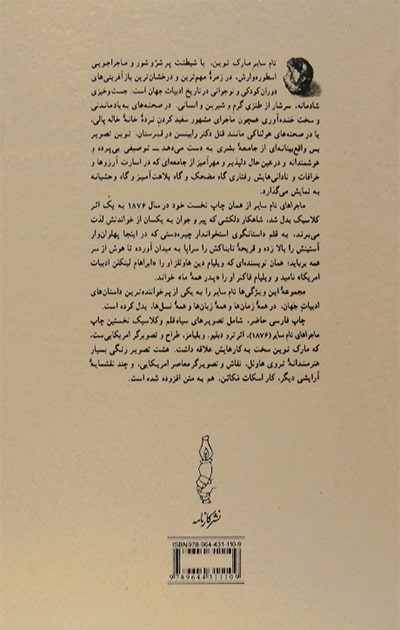 تام سایر مارک تواین، با شیطنت پر شرّ و شور و ماجراجویی
اسطوره‌وارش، در زمرهٔ مهم‌ترین و درخشان‌ترین بازآفرینی‌های
دوران کودکی و نوجوانی در تاریخ ادبیات جهان است: جست‌وخیزی
شادمانه، سرشار از طنزی گرم و شیرین و انسانی. در صحنه‌های به‌یادماندنی
و سخت خنده‌آوری همچون ماجرای مشهور سفید کردن نردهٔ خانهٔ خاله پالی،
یا در صحنه‌های هولناکی مانند قتل دکتر رابینسن در قبرستان، تواین تصویر
بس واقع‌بینانه‌ای از جامعهٔ بشری به دست می‌دهد — توصیفی بی‌پرده و
هوشمندانه و درعین حال دلپذیر و مهرآمیز از جامعه‌ای که در اسارت آرزوها و
خرافات و نادانی‌هایش رفتاری گاه مضحک و گاه بلاهت‌آمیز و گاه وحشیانه
به نمایش می‌گذارد.
ماجراهای تام سایر از همان چاپ نخست خود در سال ۱۸۷۶ به یک اثر
کلاسیک بدل شد، شاهکار دلکشی که پیر و جوان به یکسان از خواندنش لذت
می‌برند، به قلم داستانگوی استخواندار چیره‌دستی که در اینجا پهلوان‌وار
آستینش را بالا زده و قریحهٔ تابناکش را سراپا به میدان آورده تا هوش از سر
همه برباید؛ همان نویسنده‌ای که ویلیام دین هاولز او را «ابراهام لینکلن ادبیات
امریکا» نامید و ویلیام فاکنر او را «پدر همهٔ ما» خواند.
مجموعهٔ این ویژگی‌ها تام سایر را به یکی از پرخواننده‌ترین داستان‌های
ادبیاتِ جهان، در همهٔ زمان‌ها و همهٔ زبان‌ها و همهٔ نسل‌ها، بدل کرده است.
چاپ فارسی حاضر، شامل تصویرهای سیاه‌قلم و کلاسیک نخستین چاپ
ماجراهای تام سایر (۱۸۷۶)، اثر ترو دبلیو. ویلیامز، طراح و تصویرگر امریکایی‌ست،
که مارک تواین سخت به کارهایش علاقه داشت. هشت تصویر رنگی بسیار
هنرمندانهٔ تروی هاوئل، نقاش و تصویرگر معاصر امریکایی، و چند نقشمایهٔ
آرایشی دیگر، کار اسکات مَکائن، هم به متن افزوده شده است.
نشر کارنامه
ISBN 978-964-431-110-9
9789644311109